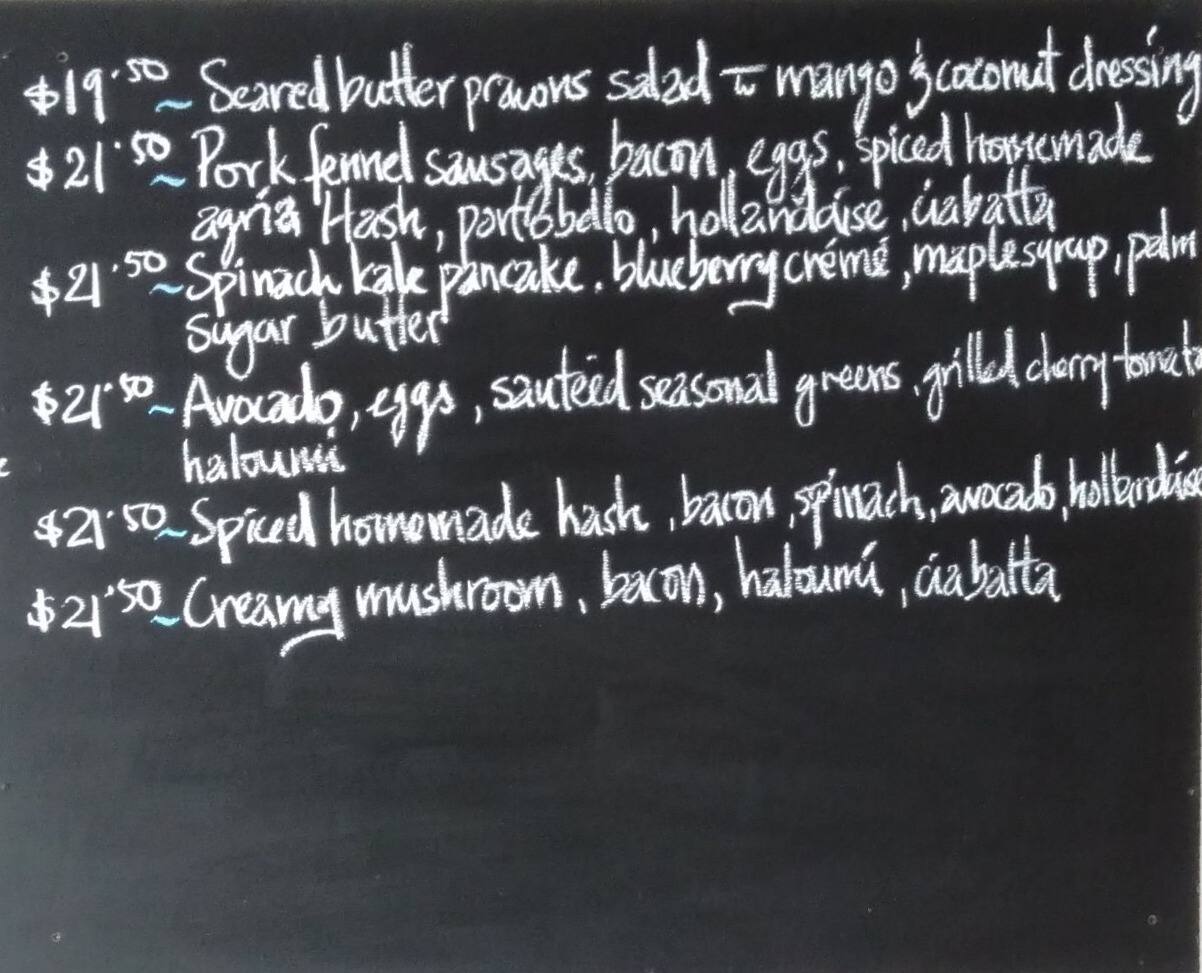 $19.50 ~ Seared butter prawns salad w mango & coconut dressing
$21.50 ~ Pork fennel sausages, bacon, eggs, spiced homemade
agria Hash, portobello, hollandaise, ciabatta
$21.50 ~ Spinach kale pancake, blueberry crémé, maple syrup, palm
sugar butter
$21.50 ~ Avocado, eggs, sauteéd seasonal greens, grilled cherry tomato
haloumi
$21.50 ~ Spiced homemade hash, bacon, spinach, avocado, hollandaise
$21.50 ~ Creamy mushroom, bacon, haloumi, ciabatta